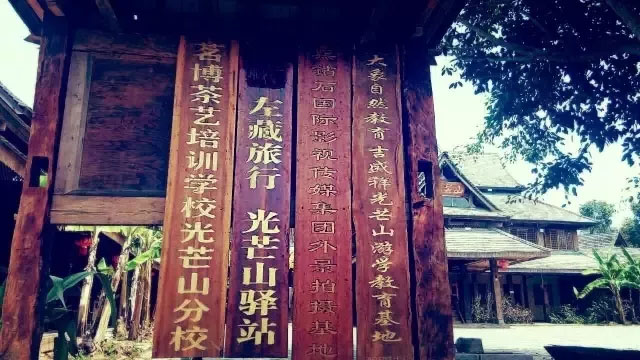 茗博茶艺培训学校光芒山分校
左藏旅行 光芒山驿站
钻石国际影视传媒集团外景拍摄基地
大象自然教育吉威祥光芒山游学教育基地